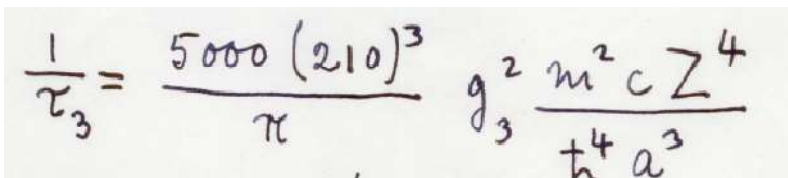 1/τ₃ = 5000 (210)³/π g₃² m² c Z⁴/ħ⁴ a³